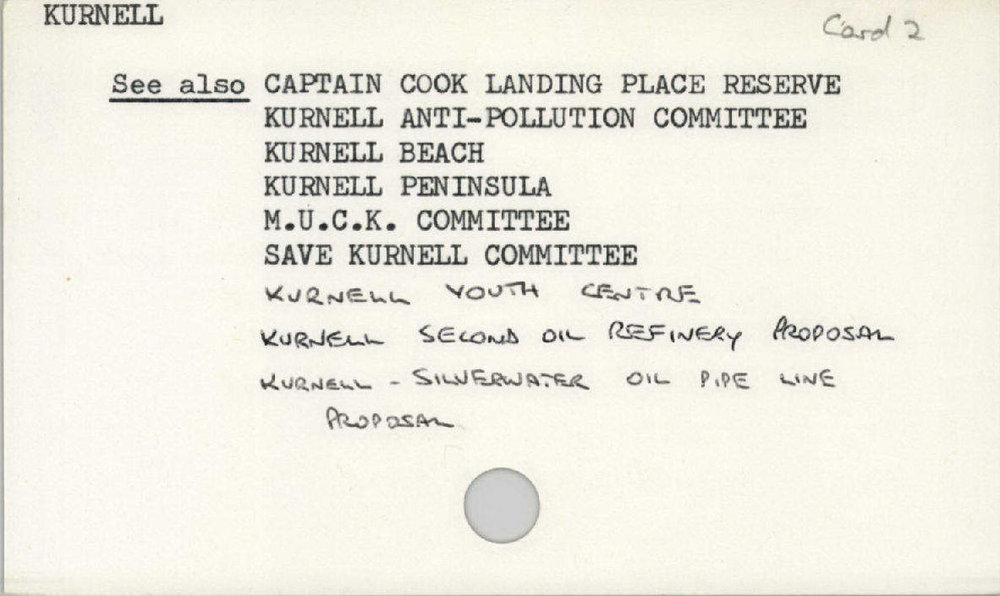 KURNELL
Card 2
See also CAPTAIN COOK LANDING PLACE RESERVE
KURNELL ANTI-POLLUTION COMMITTEE
KURNELL BEACH
KURNELL PENINSULA
M.U.C.K. COMMITTEE
SAVE KURNELL COMMITTEE
KURNELL YOUTH CENTRE
KURNELL SECOND OIL REFINERY PROPOSAL
KURNELL - SILVERWATER OIL PIPE LINE
PROPOSAL